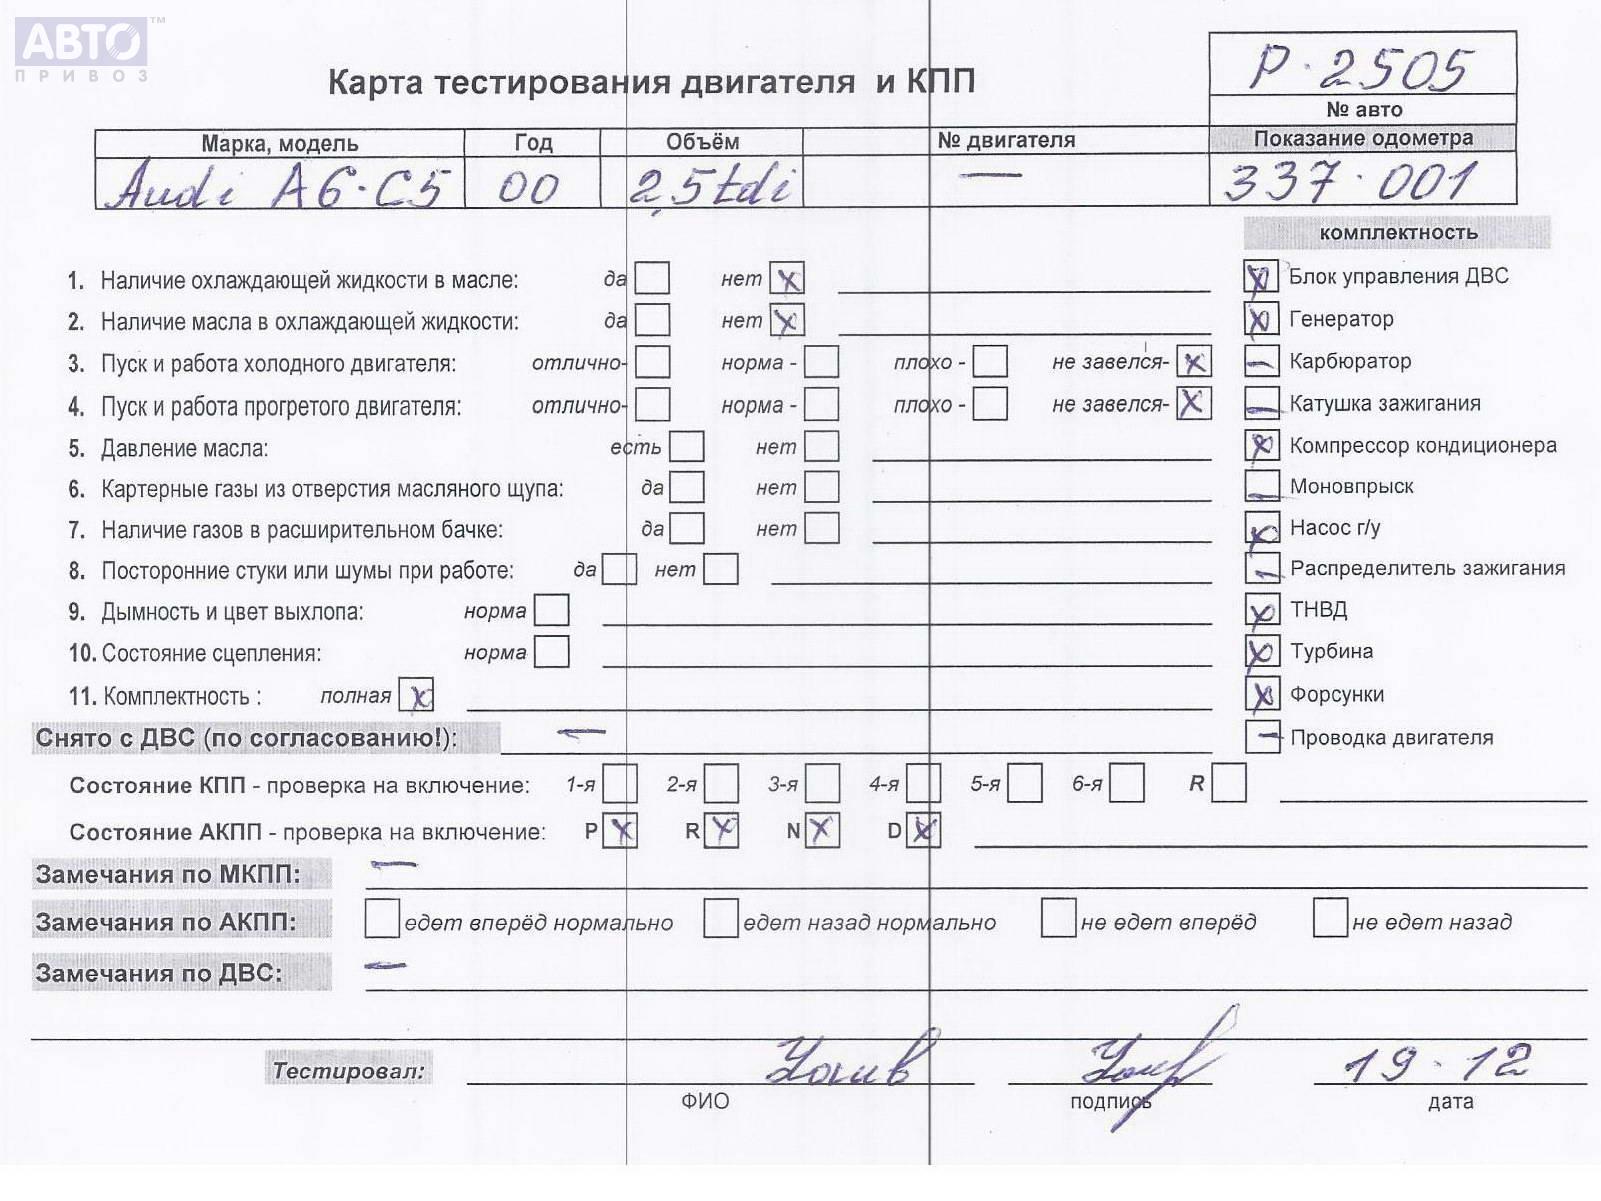 АВТО™
ПРИВОЗ
Карта тестирования двигателя и КПП
Р·2505
№ авто
Марка, модель Год Объём № двигателя Показание одометра
Audi A6·C5 00 2,5tdi — 337·001
комплектность
1. Наличие охлаждающей жидкости в масле: да нет x
Блок управления ДВС
2. Наличие масла в охлаждающей жидкости: да нет x
Генератор
3. Пуск и работа холодного двигателя: отлично- норма - плохо - не завелся- x
Карбюратор
4. Пуск и работа прогретого двигателя: отлично- норма - плохо - не завелся- x
Катушка зажигания
5. Давление масла: есть нет
Компрессор кондиционера
6. Картерные газы из отверстия масляного щупа: да нет
Моновпрыск
7. Наличие газов в расширительном бачке: да нет
Насос г/у
8. Посторонние стуки или шумы при работе: да нет
Распределитель зажигания
9. Дымность и цвет выхлопа: норма
ТНВД
10. Состояние сцепления: норма
Турбина
11. Комплектность : полная x
Форсунки
Снято с ДВС (по согласованию!): —
Проводка двигателя
Состояние КПП - проверка на включение: 1-я 2-я 3-я 4-я 5-я 6-я R
Состояние АКПП - проверка на включение: P x R x N x D x
Замечания по МКПП: —
Замечания по АКПП: едет вперёд нормально едет назад нормально не едет вперёд не едет назад
Замечания по ДВС: —
Тестировал: 19·12
ФИО подпись дата